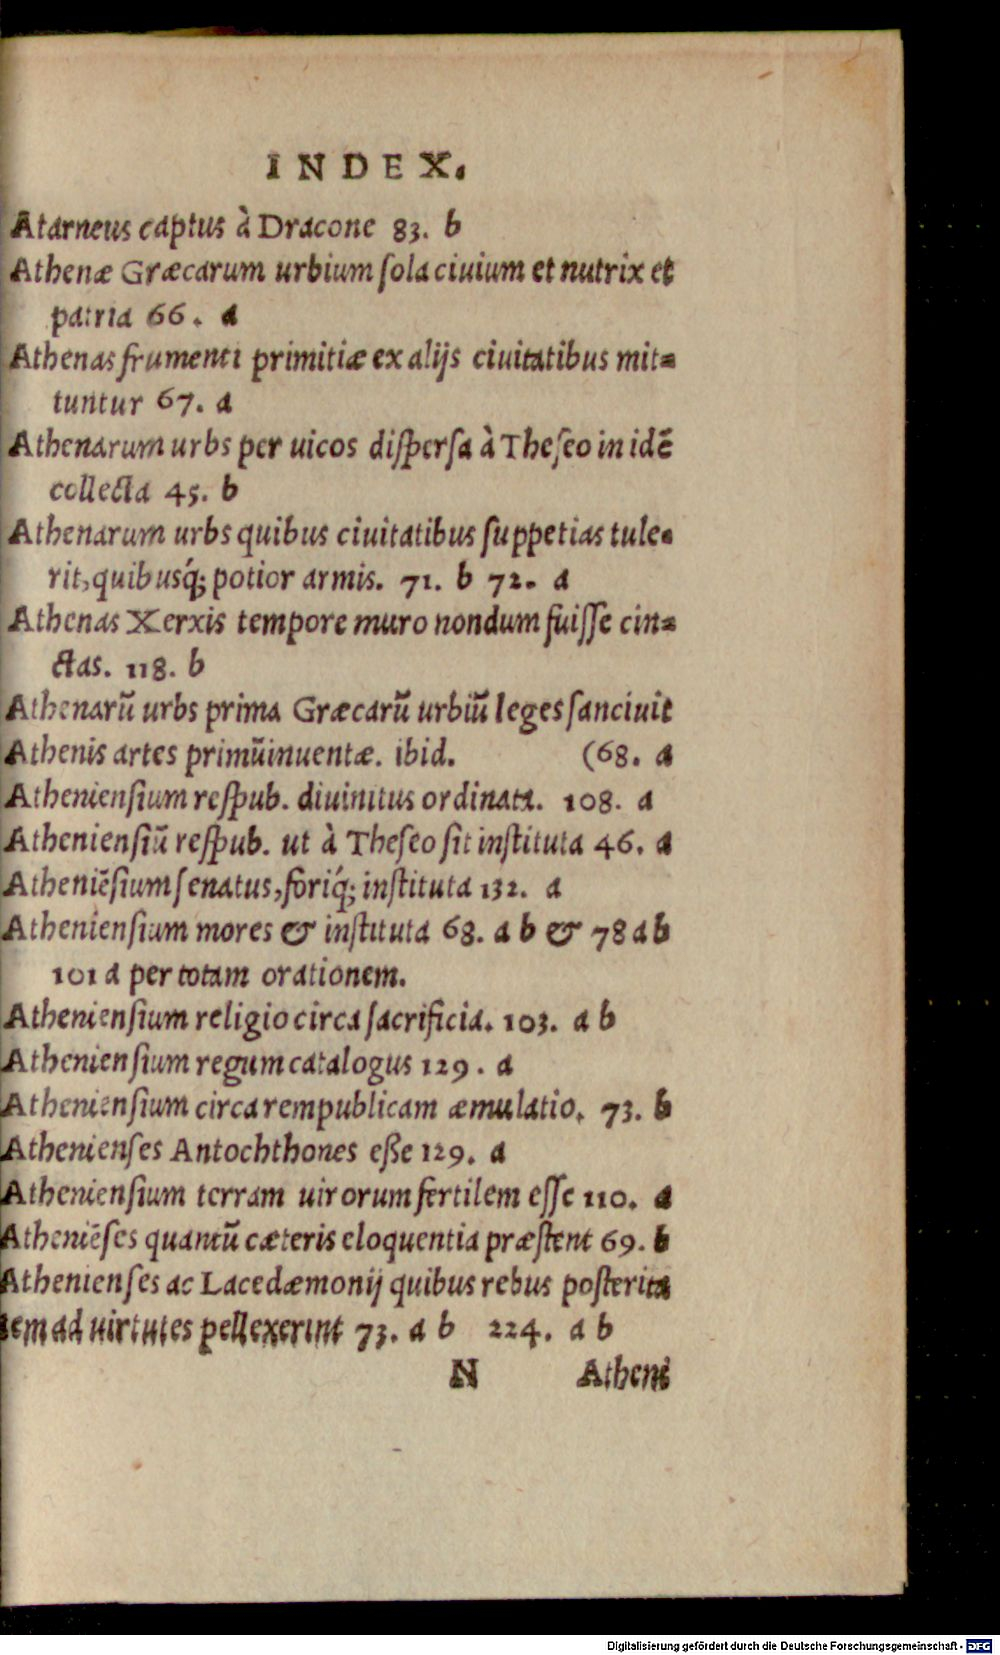 INDEX.
Atarneus captus à Dracone 83. b
Athenæ Græcarum urbium ſola ciuium et nutrix et
patria 66. a
Athenas frumenti primitiæ ex alijs ciuitatibus mit=
tuntur 67. a
Athenarum urbs per uicos diſperſa à Theſeo in idē
collecta 45. b
Athenarum urbs quibus ciuitatibus ſuppetias tule=
rit, quibusq́; potior armis. 71. b 72. a
Athenas Xerxis tempore muro nondum fuiſſe cin=
ctas. 118. b
Athenarū urbs prima Græcarū urbiū leges ſanciuit
Athenis artes primū inuentæ. ibid. (68. a
Athenienſium reſpub. diuinitus ordinata. 108. a
Athenienſiū reſpub. ut à Theſeo ſit inſtituta 46. a
Atheniēſium ſenatus, foriq́; inſtituta 132. a
Athenienſium mores & inſtituta 68. a b & 78 a b
101 a per totam orationem.
Athenienſium religio circa ſacrificia. 103. a b
Athenienſium regum catalogus 129. a
Athenienſium circa rempublicam æmulatio. 73. b
Athenienſes Antochthones eße 129. a
Athenienſium terram uirorum fertilem eſſe 110. a
Atheniēſes quantū cæteris eloquentia præſtent 69. b
Athenienſes ac Lacedæmonij quibus rebus poſterita
tem ad uirtutes pellexerint 73. a b 224. a b
N Atheni
Digitalisierung gefördert durch die Deutsche Forschungsgemeinschaft - DFG